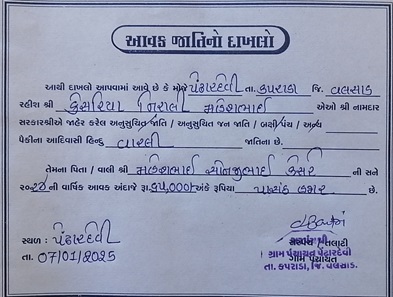 આવક જાતિનો દાખલો
આથી દાખલો આપવામાં આવે છે કે મોજે પેંઢારદેવી તા. કપરાડા જિ. વલસાડ
રહીશ શ્રી નિરાલી મહેશભાઈ એઓ શ્રી નામદાર
સરકારશ્રીએ જાહેર કરેલ અનુસુચિત જાતિ / અનુસુચિત જન જાતિ / બક્ષીપંચ / અન્ય
પૈકીના આદિવાસી હિન્દુ વારલી જાતિના છે.
તેમના પિતા / વાલી શ્રી મહેશભાઈ ની સને
ની વાર્ષિક આવક અંદાજે રૂા. અંકે રૂપિયા હજાર છે.
સ્થળ : પેંઢારદેવી
તા. 07/01/2025
સરપંચ / તલાટી
ગ્રામ પંચાયત પેંઢારદેવી
ગ્રામ પંચાયત
તા. કપરાડા, જિ. વલસાડ.